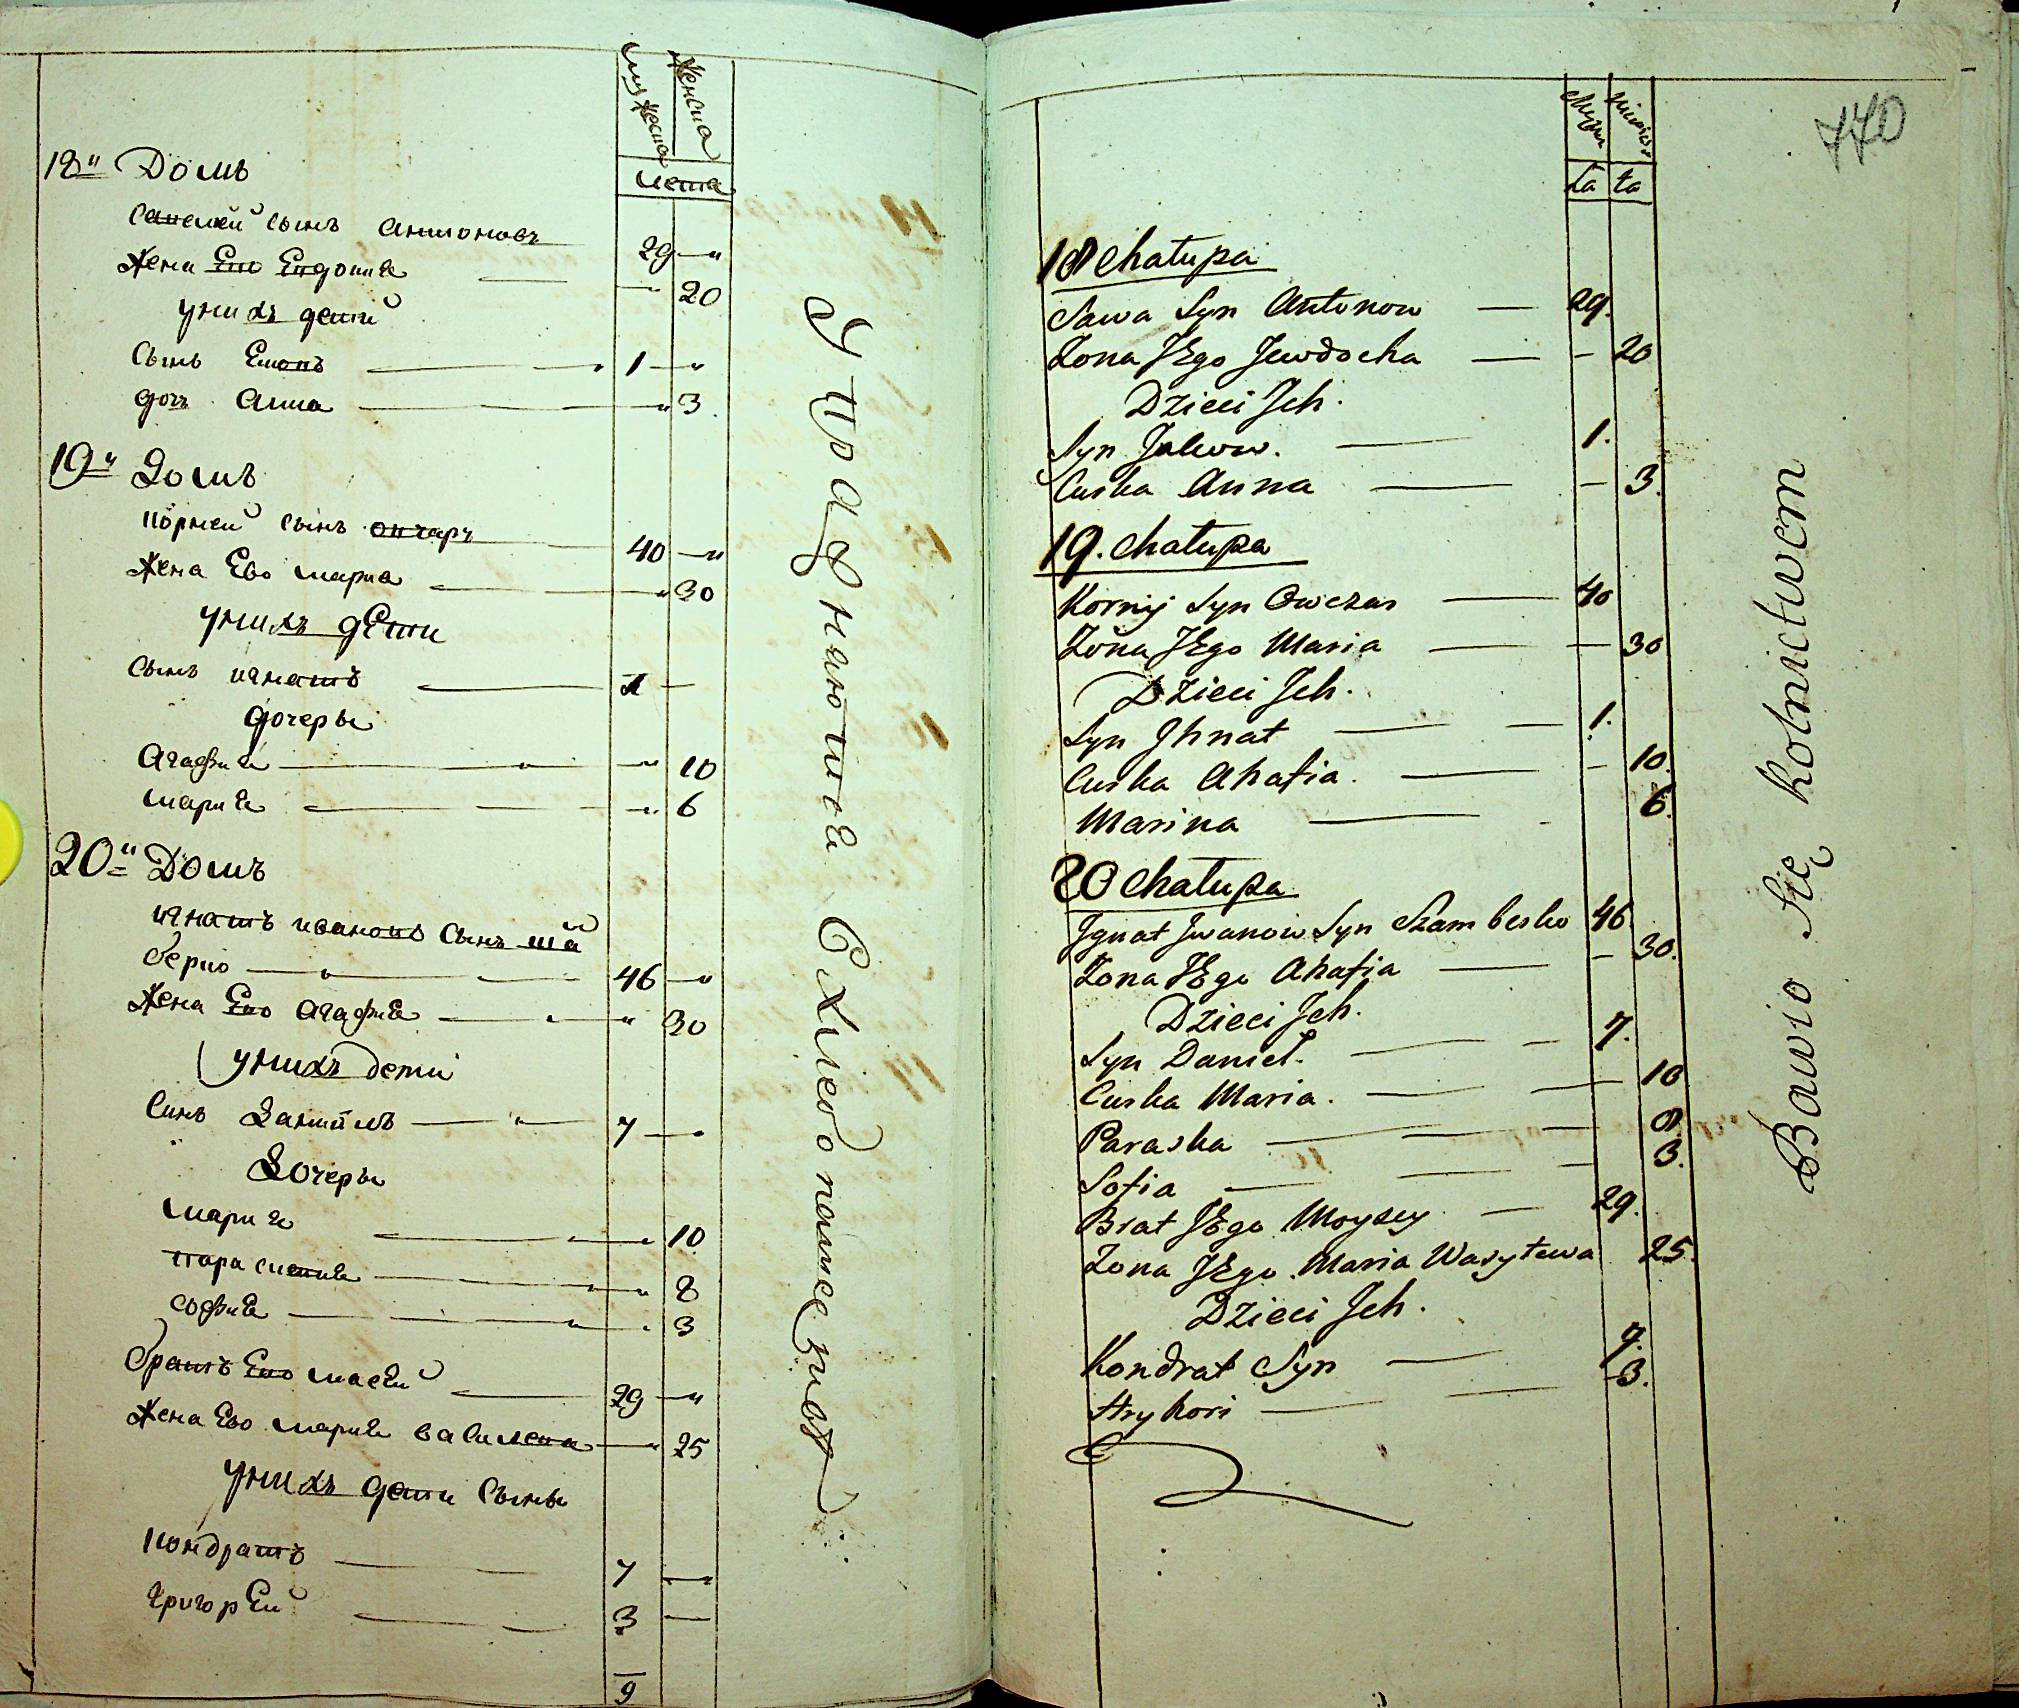 мужеска
женска
лета
18й Домъ
Савелей сынъ антоновъ 29 "
Жена Его Евдокия " 20
у нихъ дети
Сынъ 1 "
дочь анна " 3
19й Домъ
корней сынъ овчаръ 40 "
Жена Ево мариа " 30
у нихъ дЕти
Сынъ игнатъ 1
дочеры
Агафия " 10
мария " 6
20й Домъ
игнатъ ивановъ Сынъ шам
берко 46 "
Жена Его агафия " 30
у нихъ дети
Синъ Данийлъ 7
Дочеры
мария 10
параскевия 8
софия 3
братъ Его масей 29 "
Жена Ево мария василева 25
у нихъ дети Сыны
кондратъ 7
григорЕй 3
9
Упражнаютися Схлебопашеством
ta ta
18 Chałupa
Sawa Syn Antonow 29.
Zona JEgo Jewdocha 20
Dzieci Jch.
Syn Jakow. 1.
Curka Anna 3.
19. Chałupa
Kornij Syn Owczar 40
Zona JEgo Maria 30
Dzieci Jch.
Syn Jhnat 1.
Curka Ahafia. 10.
Marina 6.
20 Chałupa
Jgnat Jwanow Syn Szamberko 46
Zona JEgo Ahafia 30.
Dzieci Jch.
Syn Danieł. 7.
Curka Maria. 10
Paraska 8.
Sofia 3.
Brat JEgo Moysey 29.
Zona JEgo Maria Wasyłewa 25.
Dzieci Jch.
Kondrat Syn 7.
Hryhori 3.
Bawio Się Rolnictwem
770